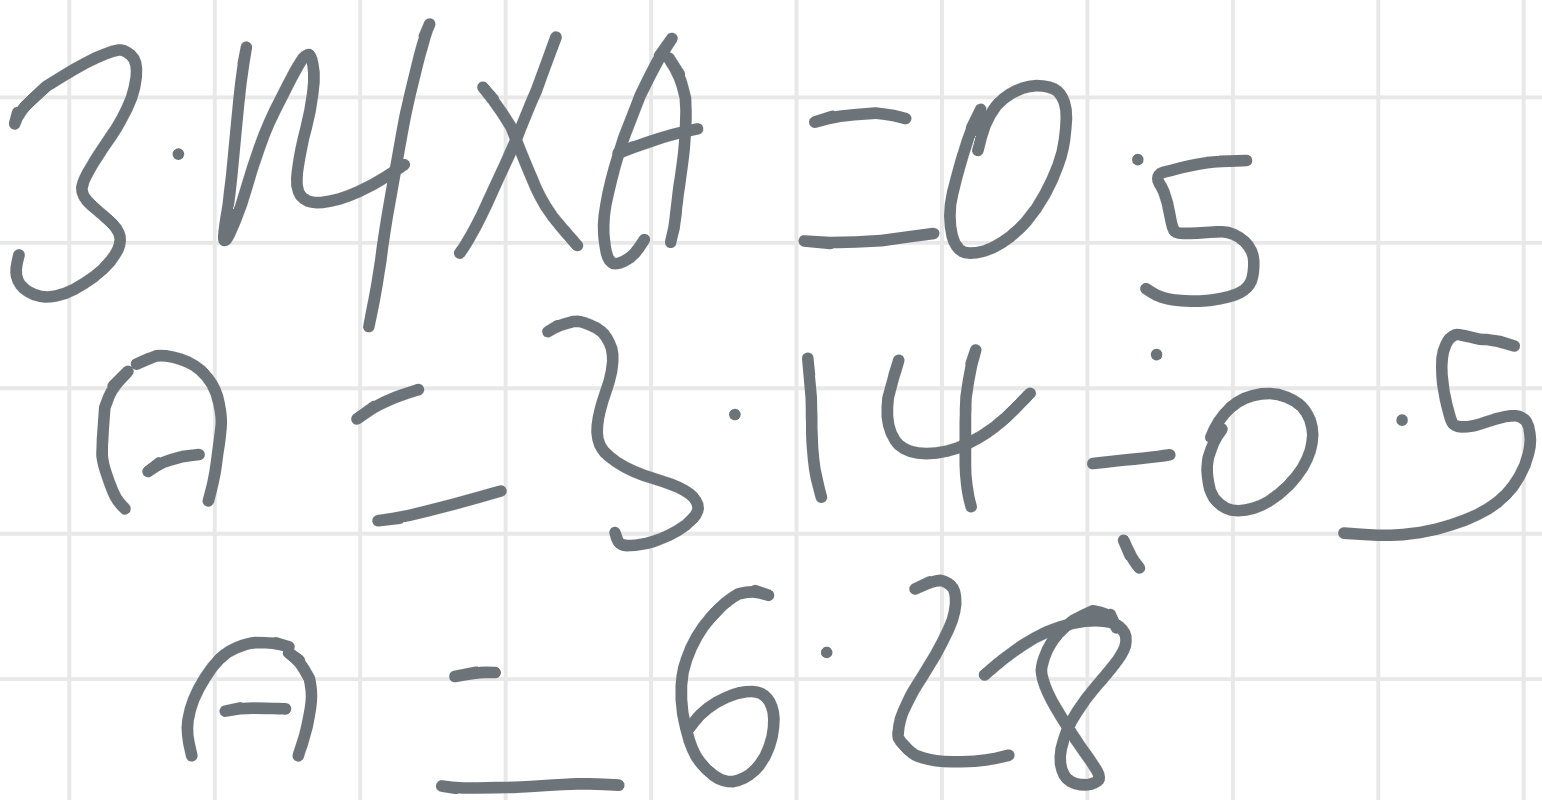 3.14×A=0.5
A=3.14÷0.5
A=6.28